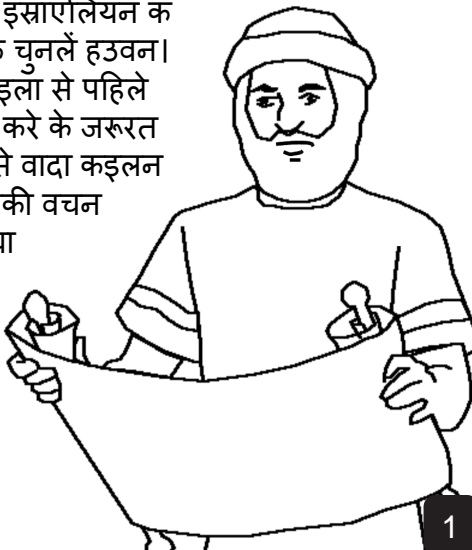 इस्राएलियन क
चुनलें हउवन।
इला से पहिले
करे के जरूरत
से वादा कइलन
की वचन
1